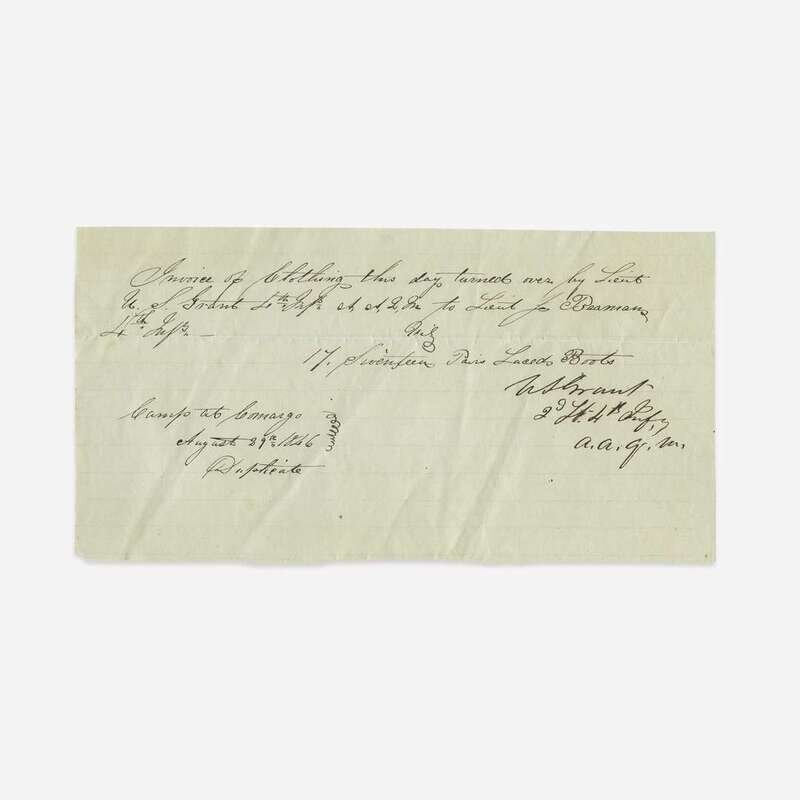 Invoice of Clothing this day turned over by Lieut
U. S. Grant 4th Infy. A. A. Q. M. to Lieut J. Beaman
4th Infy. — Viz
17. Seventeen Pairs Laced Boots
U S Grant
2d Lt. 4th Infy
a. a. q. m.
Camp at Comargo
August 29th 1846
Duplicate